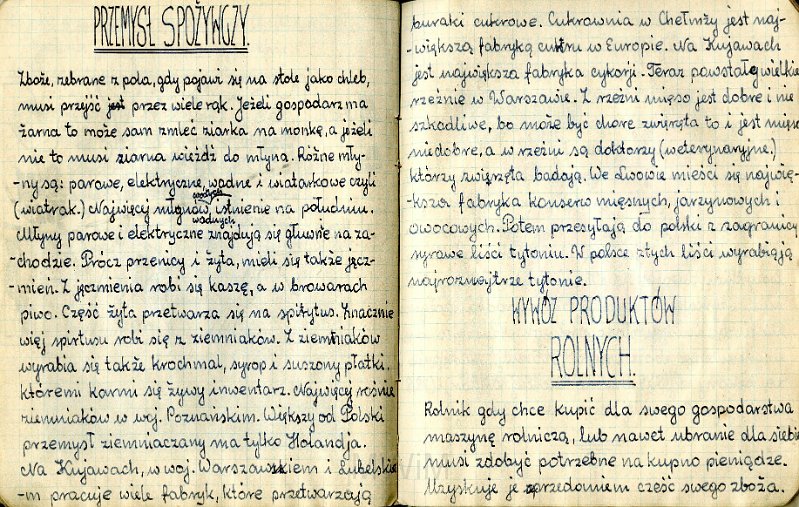 PRZEMYSŁ SPOŻYWCZY.
Zboże, zebrane z pola, gdy pojawi się na stole jako chleb,
musi przejść przez wiele rąk. Jeżeli gospodarz ma
żarna to może sam zmleć ziarka na monkę, a jeżeli
nie to musi ziarna wieźdź do młyna. Różne mły-
-ny są: parowe, elektryczne, wodne i wiatarkowe czyli
(wiatrak.) Najwięcej młynów, istnienie na południu.
wodnych
Młyny parowe i elektryczne znajdują się głuwnie na za-
-chodzie. Prócz przenicy i żyta, mieli się także jęcz-
-mień. Z jęczmienia robi się kaszę, a w browarach
piwo. Część żyta przetwarza się na spirytus. Znacznie
więj spirtusu robi się z ziemniaków. Z ziemniaków
wyrabia się także krochmal, syrop i suszony płatki.
któremi karmi się żywy inwentarz. Najwięcej rośnie
ziemniaków w woj. Poznańskim. Większy od Polski
przemysł ziemniaczany ma tylko Holandja.
Na Kujawach, w woj. Warszawskiem i Lubelskie
-m pracuje wiele fabryk, które przetwarzają
buraki cukrowe. Cukrownia w Chełmży jest naj-
-większą fabryką cukru w Europie. Na Kujawach
jest największa fabryka cykorji. Teraz powstały wielkie
rzeźnie w Warszawie. Z rzeźni mięso jest dobre i nie
szkodliwe, bo może być chore zwięrzęta to i jest mięso
niedobre, a w rzeźni są doktorzy (weterynaryjne.)
którzy zwięrzęta badają. We Lwowie mieści się najwię-
-ksza fabryka konserw mięsnych, jarzynowych i
owocowych. Potem przesyłają do polski z zagranicy
syrowe liści tytoniu. W polsce z tych liści wyrabiają
najrozmejtrze tytonie.
WYWÓZ PRODUKTÓW
ROLNYCH.
Rolnik gdy chce kupić dla swego gospodarstwa
maszynę rolniczą, lub nawet ubranie dla siebie
musi zdobyć potrzebne na kupno pieniądze.
Uzyskuje je sprzedaniem część swego zboża.